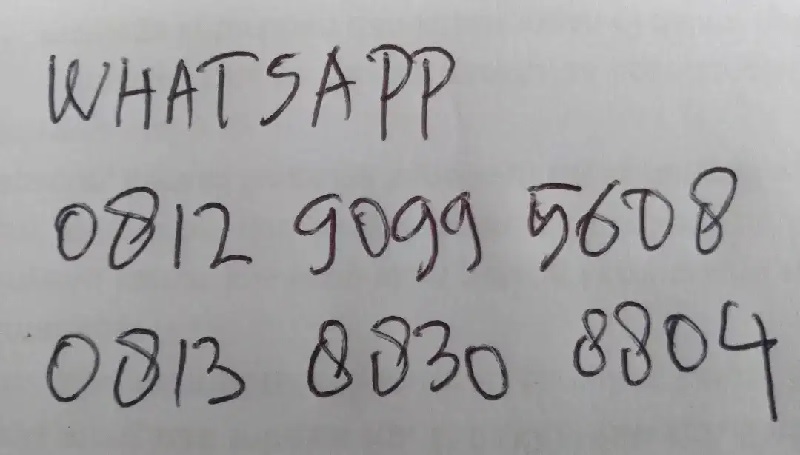 WHATSAPP
0812 9099 5608
0813 8830 8804